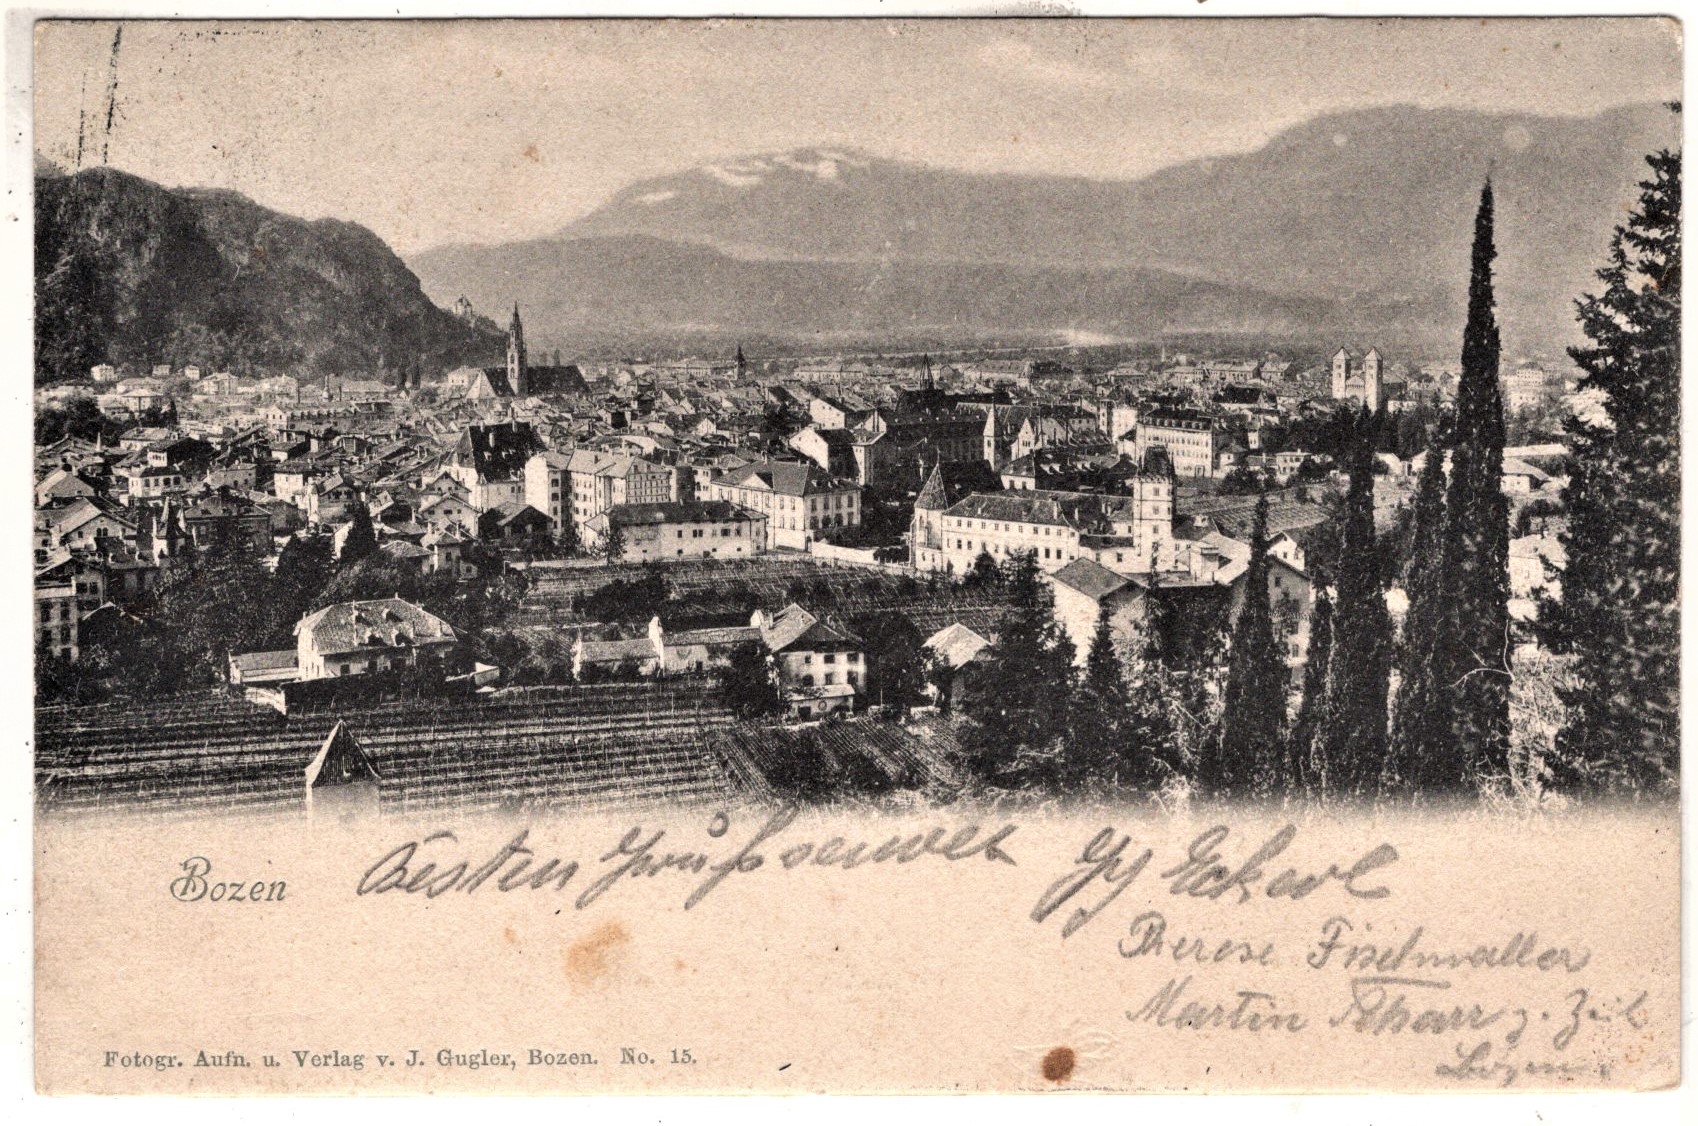 Bozen
Besten Gruß sendet
Eckart
Therese Fischnaller
Martin Scharr z. Zeit
Bozen.
Fotogr. Aufn. u. Verlag v. J. Gugler, Bozen. No. 15.